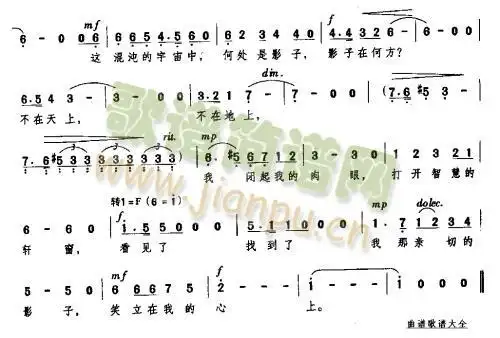 mf f
6 - 0 0 6 6 6 5 4 . 5 6 0 6 2 3 4 4 0 4 . 4 3 2 6 - 6 - 0 0
这 混沌的宇宙中, 何处是影子, 影子在何方?
din.
6 . 5 4 3 - 3 - 0 0 3 . 2 1 7 - 7 - 0 0 (7 . 6 #5 3 -
不在天上, 不在地上,
rit. mp
7 . 6 #5 3 3 3 3 3 3 3 3) 6 . #5 6 7 1 2 3 - 3 0 0 1 2 3 2 1
我 闭起我的肉 眼, 打开智慧的
转1=F (6=1) f mp dolec.
6 - 6 0 1 . 5 5 0 0 0 5 . 1 1 0 0 0 1 . 7 1 2 3 4
轩 窗, 看见了 找到了 我 那亲 切的
mf f
5 - 5 0 6 6 6 7 5 2 - - - 1 - - - 1 0 0 0
影 子, 笑立在我的 心 上。
曲谱歌谱大全
歌谱简谱网
www.jianpu.cn